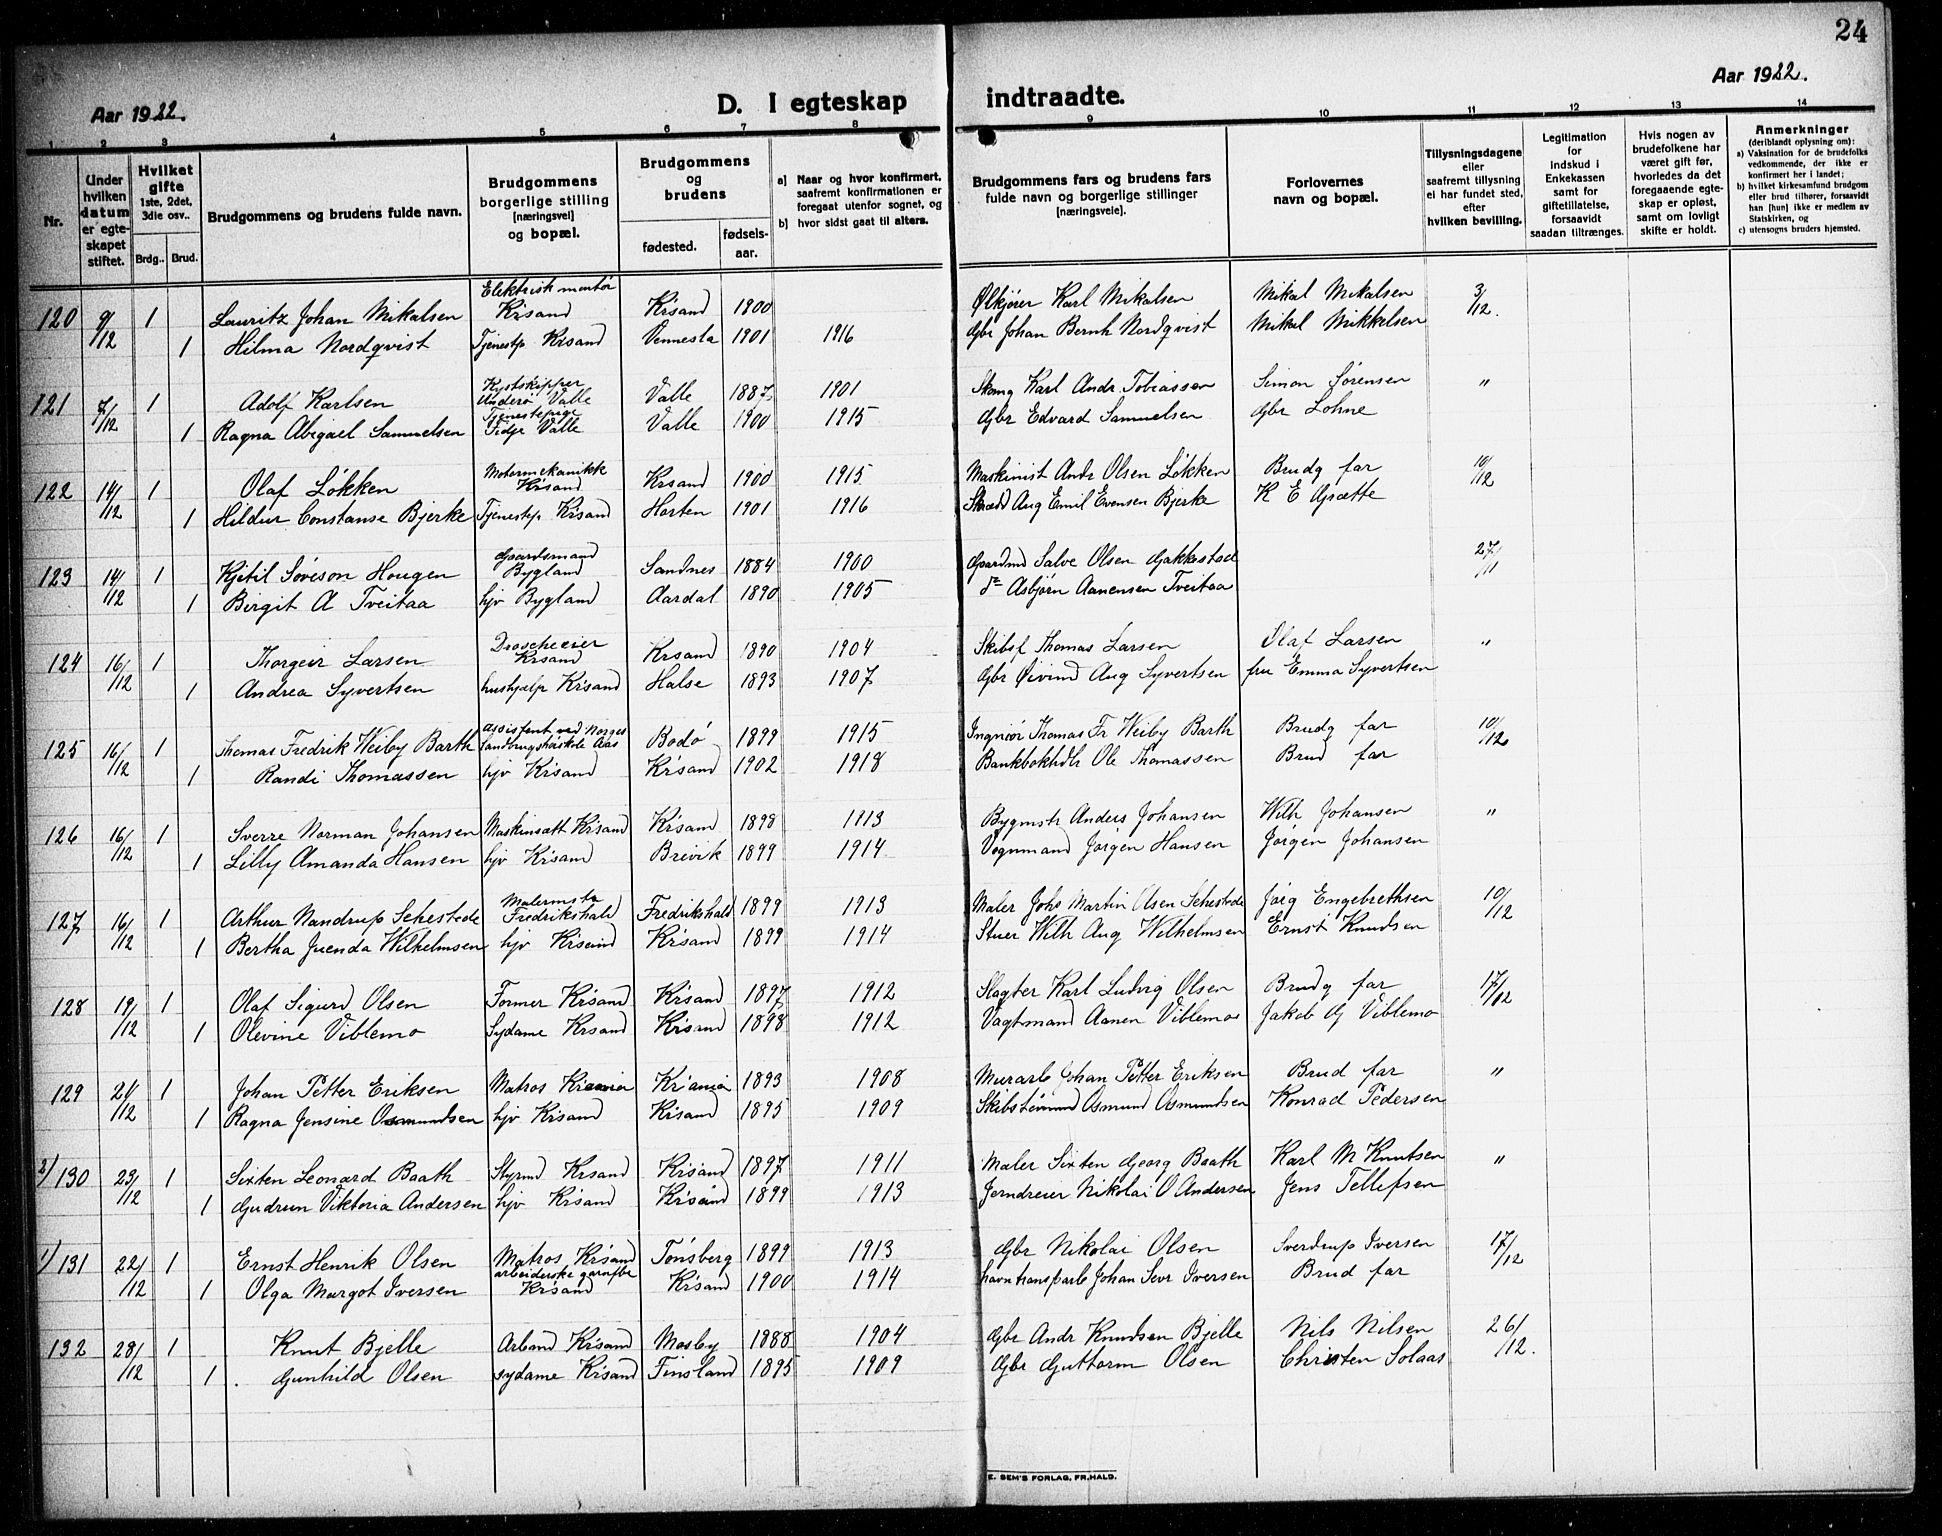 24
Aar 1922.
D. I egteskap
indtraadte.
Aar 1922.
1 2 3 4 5 6 7 8 9 10 11 12 13 14
Nr.
Under hvilken datum er egteskapet stiftet.
Hvilket gifte 1ste, 2det, 3die osv..
Brdg.. Brud.
Brudgommens og brudens fulde navn.
Brudgommens borgerlige stilling [næringsvei] og bopæl.
Brudgommens og brudens
fødested.
fødselsaar.
a) Naar og hvor konfirmert, saafremt konfirmationen er foregaat utenfor sognet, og
b) hvor sidst gaat til alters.
Brudgommens fars og brudens fars fulde navn og borgerlige stillinger [næringsveie].
Forlovernes navn og bopæl.
Tillysningsdagene eller saafremt tillysning ei har fundet sted, efter hvilken bevilling.
Legitimation for indskud i Enkekassen samt for giftetillatelse, forsaavidt saadan tiltrænges.
Hvis nogen av brudefolkene har været gift før, hvorledes da det foregaaende egteskap er opløst, samt om lovligt skifte er holdt.
Anmerkninger (deriblandt oplysning om):
a) Vaksination for de brudefolks vedkommende, der ikke er konfirmert her i landet;
b) hvilket kirkesamfund brudgom eller brud tilhører, forsaavidt han [hun] ikke er medlem av Statskirken, og
c) utensogns bruders hjemsted.
120 9/12 1 Lauritz Johan Mikalsen Elektrisk montør Kr.sand Kr.sand 1900 Ølkjører Karl Mikalsen Mikal Mikalsen 3/12.
1 Hilma Nordqvist Tjenestp Kr.sand Vennesla 1901 1916 Gbr Johan Bernh Nordqvist Mikal Mikkelsen
121 7/12 1 Adolf Karlsen Kystskipper Underø Valle Valle 1887 1901 Skomg Karl Andr Tobiassen Simon Sørensen "
1 Ragna Abigael Samuelsen Tjenestepige Fidje Valle Valle 1900 1915 Gbr Edvard Samuelsen Gbr Lohne
122 14/12 1 Olaf Løkken Motormekanikk Kr.sand Kr.sand 1900 1915 Maskinist Andr Olsen Løkken Brudg far 10/12
1 Hildur Constanse Bjerke Tjenestp Kr.sand Horten 1901 1916 Skrædd Aug Emil Evensen Bjerke K E Grætte
123 14/12 1 Kjetil Søveson Hougen Gaardsmand Bygland Sandnes 1884 1900 Gaardmd Salve Olsen Gakkestad 27/11
1 Birgit A Tveitaa hjv Bygland Aardal 1890 1905 do Asbjørn Aanensen Tveitaa
124 16/12 1 Thorgeir Larsen Droscheeier Kr.sand Kr.sand 1890 1904 Skibsf Thomas Larsen Olaf Larsen "
1 Andrea Syvertsen hushjælp Kr.sand Halse 1893 1907 Gbr Øivind Aug Syvertsen fru Emma Syvertsen
125 16/12 1 Thomas Fredrik Weiby Barth assistent ved Norges Landbrugshøiskole Aas Bodø 1899 1915 Ingniør Thomas Fr Weiby Barth Brudg far 10/12
1 Randi Thomassen hjv Kr.sand Kr.sand 1902 1918 Bankbokhdlr Ole Thomassen Brud far
126 16/12 1 Sverre Norman Johansen Maskinsætt Kr.sand Kr.sand 1898 1913 Bygmstr Anders Johansen Wilh Johansen "
1 Lilly Amanda Hansen hjv Kr.sand Brevik 1899 1914 Vognmand Jørgen Hansen Jørgen Johansen
127 16/12 1 Arthur Nandrup Sehestede Malermstr Fredrikshald Fredrikshald 1899 1913 Maler Johs Martin Olsen Sehestede Jørg Engebrethsen 10/12
1 Bertha Juenda Wilhelmsen hjv Kr.sand Kr.sand 1899 1914 Stuer Wilh Aug Wilhelmsen Ernst Knudsen
128 19/12 1 Olaf Sigurd Olsen Former Kr.sand Kr.sand 1897 1912 Slagter Karl Ludvig Olsen Brudg far 17/12
1 Olevine Viblemo Sydame Kr.sand Kr.sand 1898 1912 Vagtmand Aanen Viblemo Jakob G Viblemo
129 21/12 1 Johan Petter Eriksen Matros Kr.ania Kr.ania 1893 1908 Murarb Johan Petter Eriksen Brud far "
1 Ragna Jensine Osmundsen hjv Kr.sand Kr.sand 1895 1909 Skibstømmd Osmund Osmundsen Konrad Pedersen
2/130 23/12 1 Sixten Leonard Baath Styrmd Kr.sand Kr.sand 1897 1911 Maler Sixten Georg Baath Karl M Knutsen "
1 Gudrun Viktoria Andersen hjv Kr.sand Kr.sand 1899 1913 Jerndreier Nikolai O Andersen Jens Tellefsen
1/131 22/12 1 Ernst Henrik Olsen Matros Kr.sand Tønsberg 1899 1913 Gbr Nikolai Olsen Sverdrup Iversen 17/12
1 Olga Margot Iversen arbeiderske garnfbr Kr.sand Kr.sand 1900 1914 havntransparb Johan Sevr Iversen Brud far
132 28/12 1 Knut Bjelle Arbmd Kr.sand Mosby 1888 1904 Gbr Andr Knudsen Bjelle Nils Nilsen 26/12.
1 Gunhild Olsen sydame Kr.sand Finsland 1895 1909 Gbr Guttorm Olsen Christen Solaas
E. SEM'S FORLAG, FR.HALD.